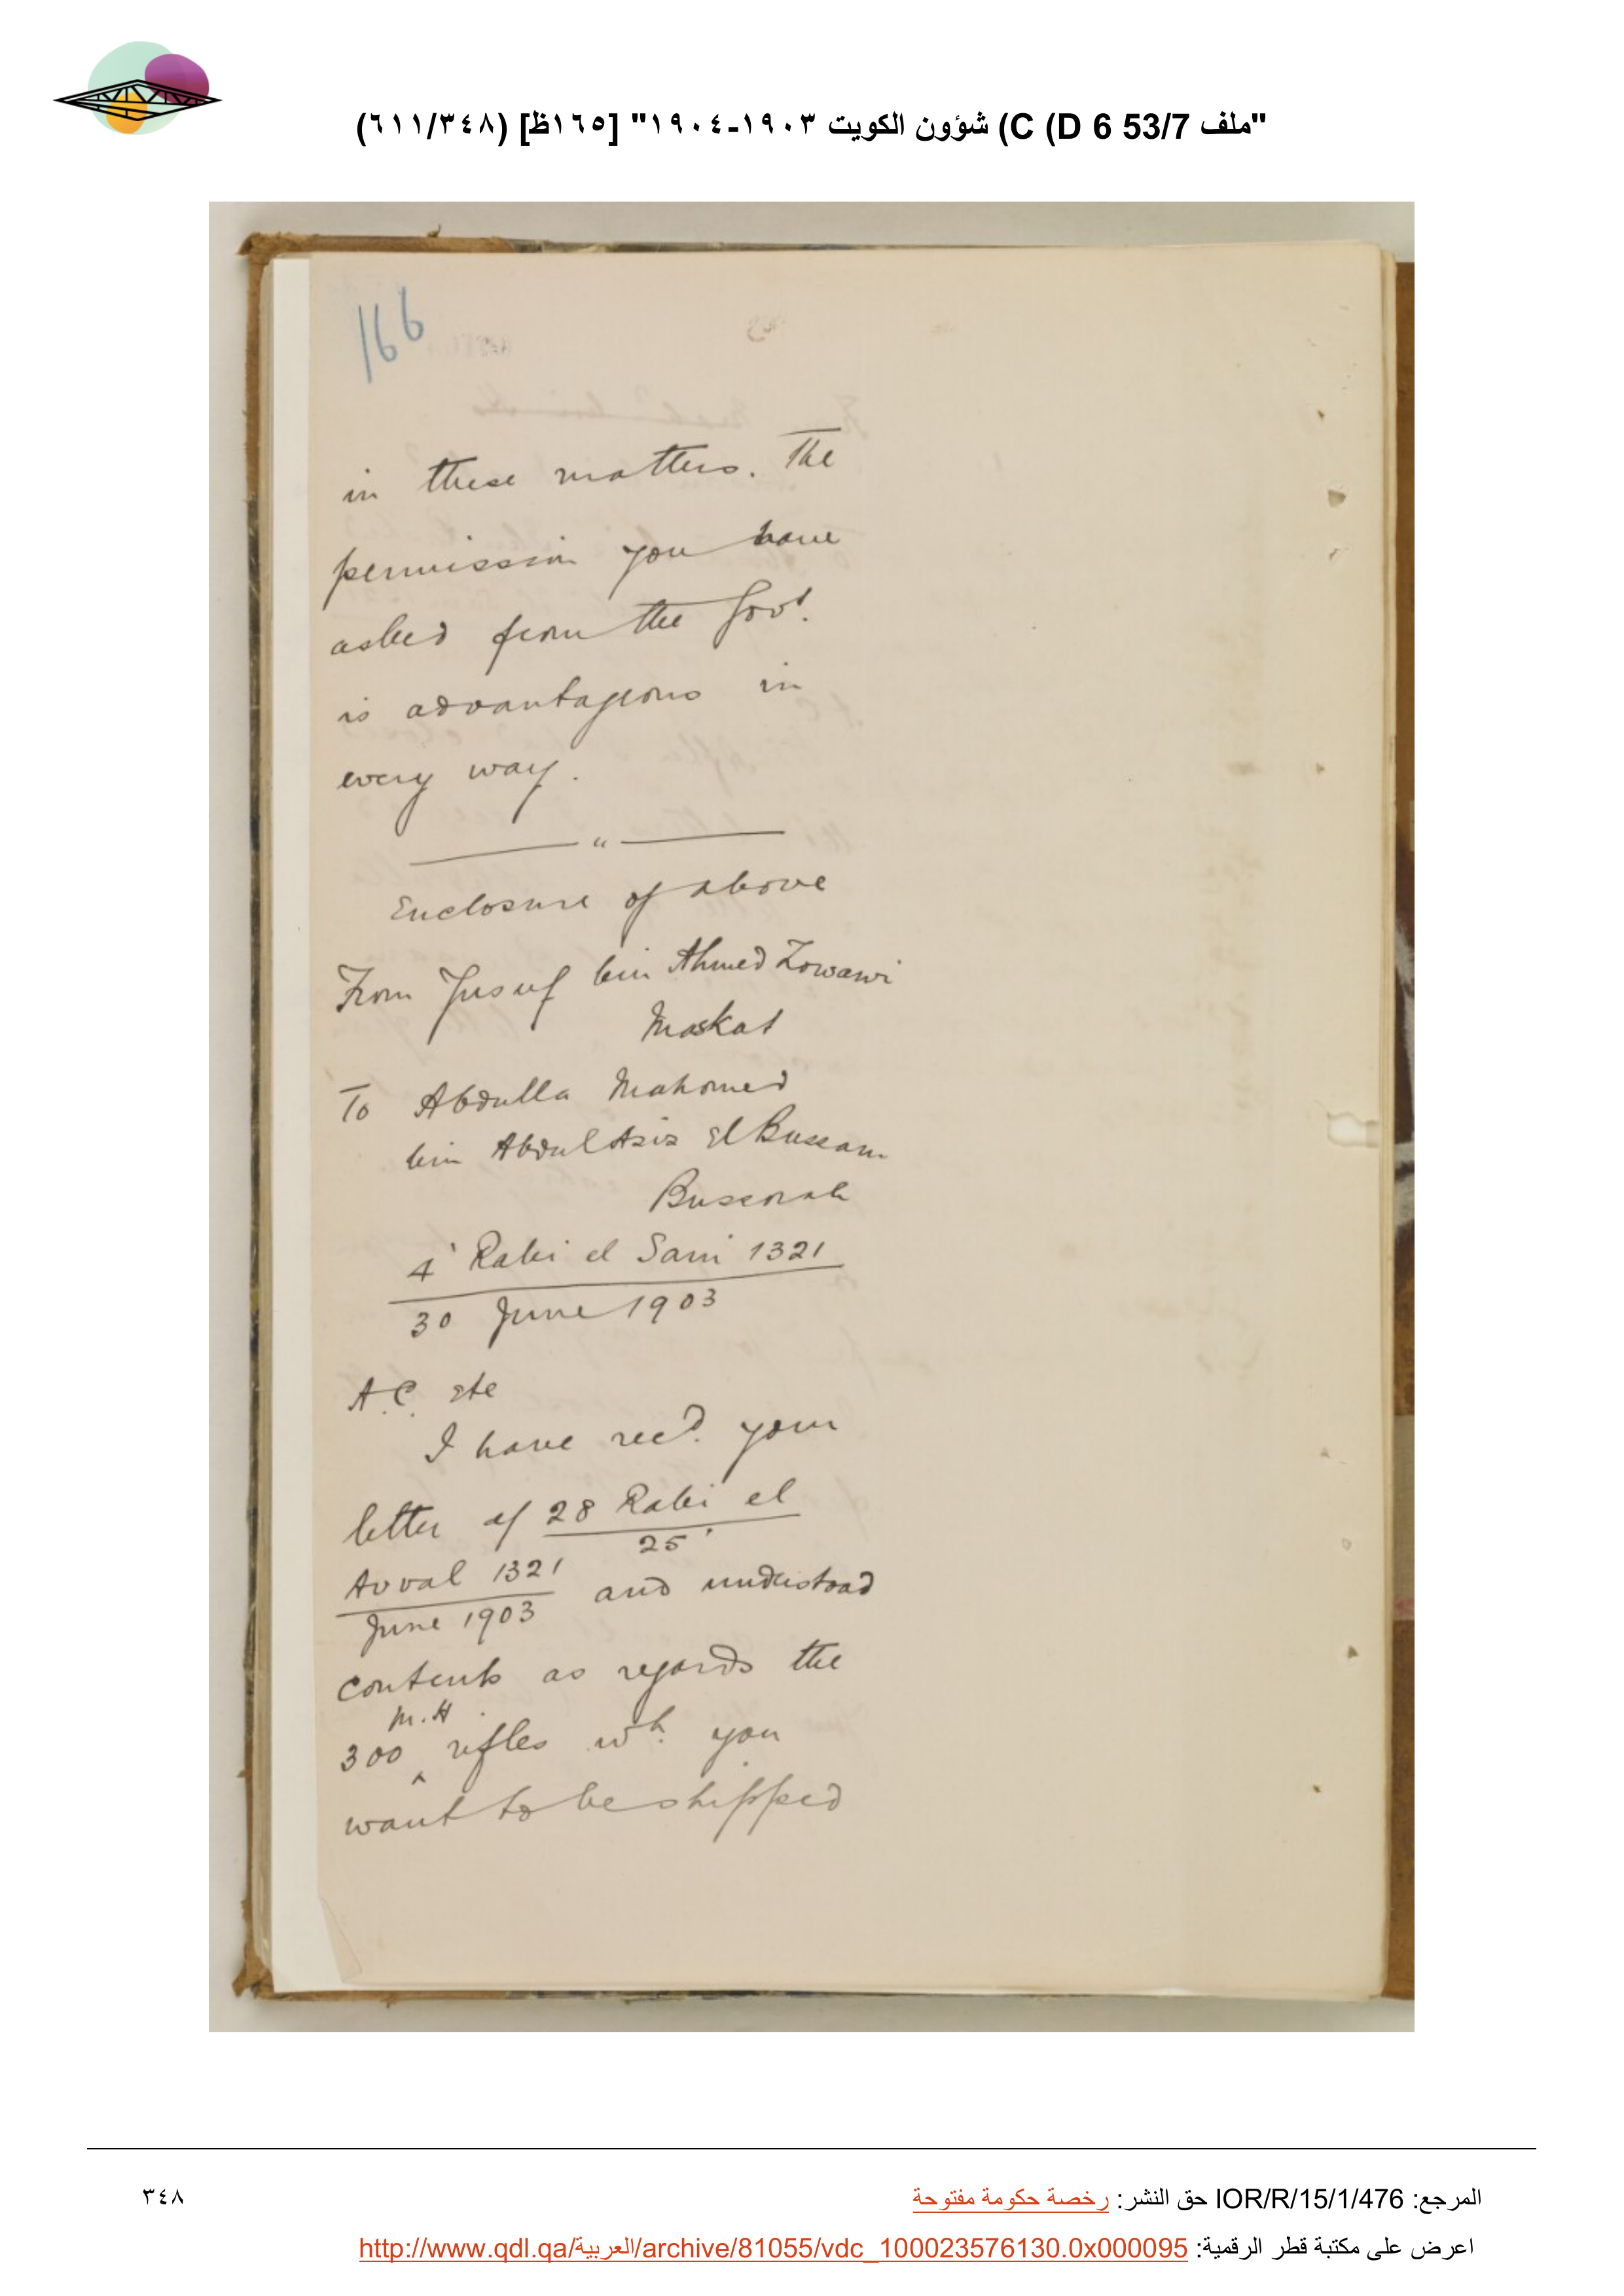 "ملف 53/7 C (D 6) شؤون الكويت ١٩٠٣-١٩٠٤" [١٦٥ظ] (٦١١/٣٤٨)
166
in these matters. The
permission you have
asked from the Govt.
is advantageous in
every way.
"
Enclosure of above
From Yusuf bin Ahmed Zowawi
Maskat
To Abdulla Mahomed
bin Abdul Aziz El Bussam
Bussorah
4 Rabi el Sani 1321
30 June 1903
A.C. etc
I have recd. your
letter of 28 Rabi el
25
Avval 1321 and understood
June 1903
contents as regards the
M.H.
300 ^ rifles wh. you
want to be shipped
المرجع: IOR/R/15/1/476 حق النشر: رخصة حكومة مفتوحة
٣٤٨
اعرض على مكتبة قطر الرقمية: http://www.qdl.qa/العربية/archive/81055/vdc_100023576130.0x000095